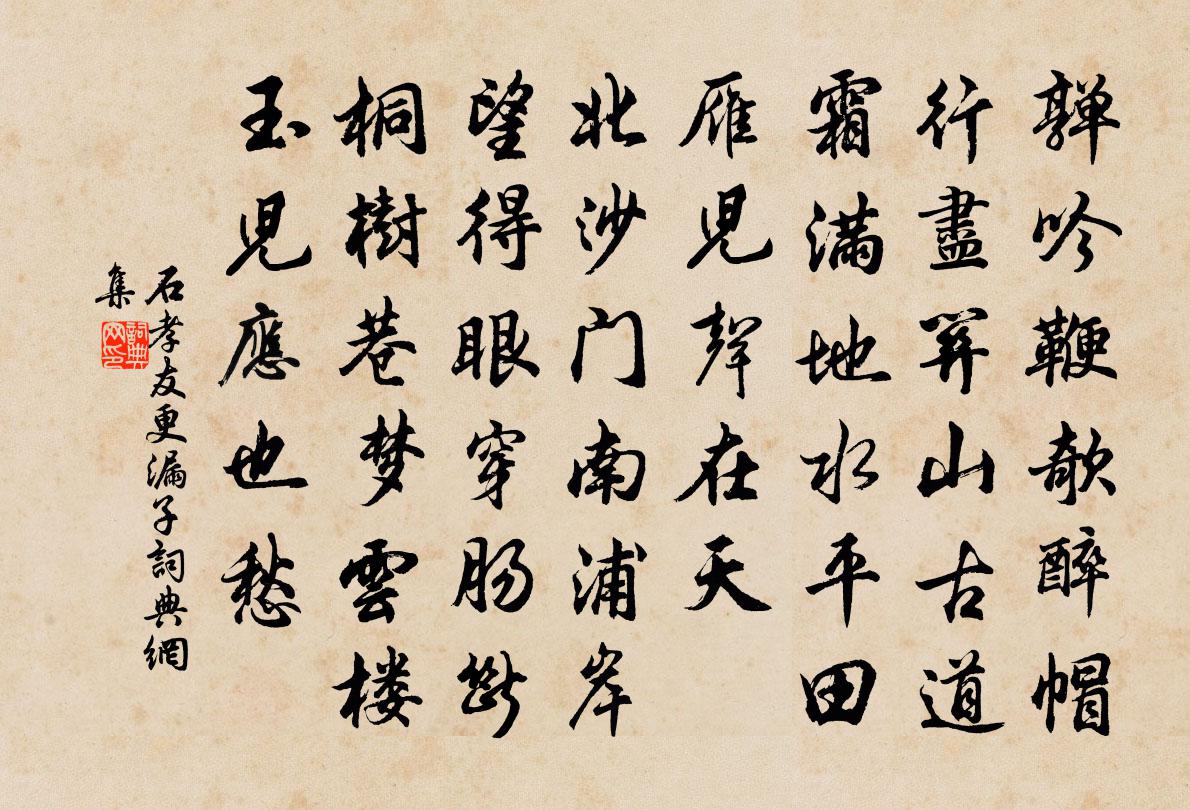 嚲吟鞭欹醉帽
行盡關山古道
霜滿地水平田
雁兒聲在天
北沙门南浦岸
望得眼穿腸斷
桐樹巷梦雲楼
玉兒應也愁
石孝友更漏子詞典網
集
詞典
网印